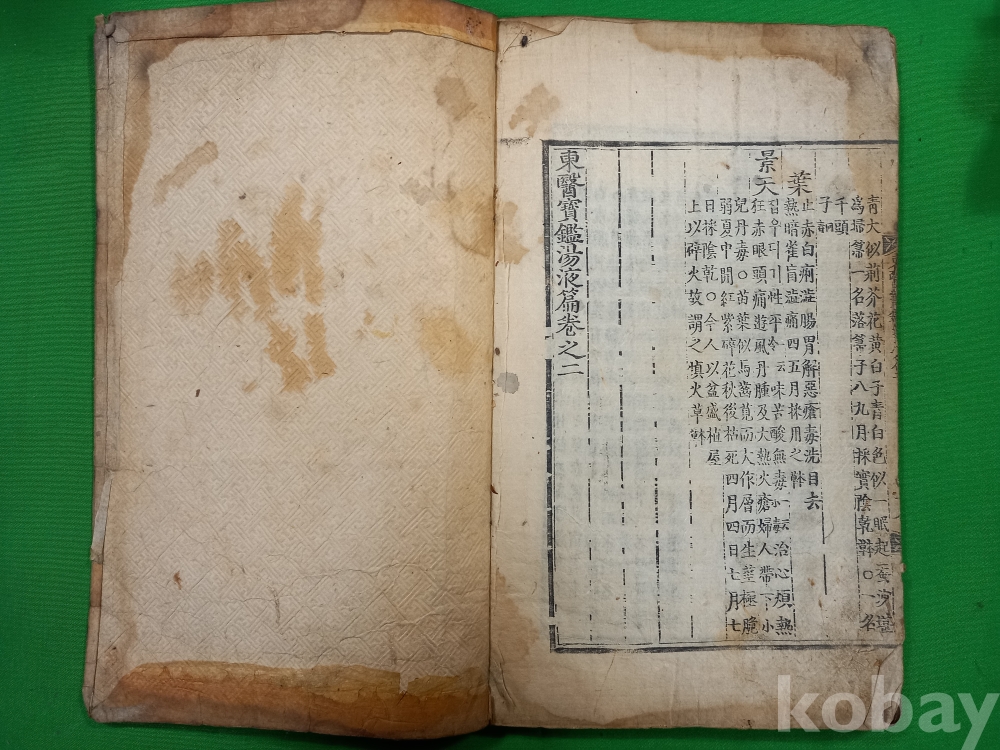 青大似荊芥花黃白子青白色似一眠起蚕沙
爲掃箒一名落箒子八九月採實陰乾 ○一名
千頭
子
葉
止赤白痢澁腸胃解惡瘡毒洗目去
熱暗雀盲澁痛四五月採用之
景天
집우디기性平
云味苦酸無毒
治心煩熱
狂赤眼頭痛遊風丹腫及大熱火瘡婦人帶下小
兒丹毒○苗葉似馬齒莧而大作層而生莖極脆
弱夏中開紅紫碎花秋後枯死四月四日七月七
日採陰乾○今人以盆盛植屋
上以碎火故謂之塡火草
東醫寶鑑湯液篇卷之二
kobay